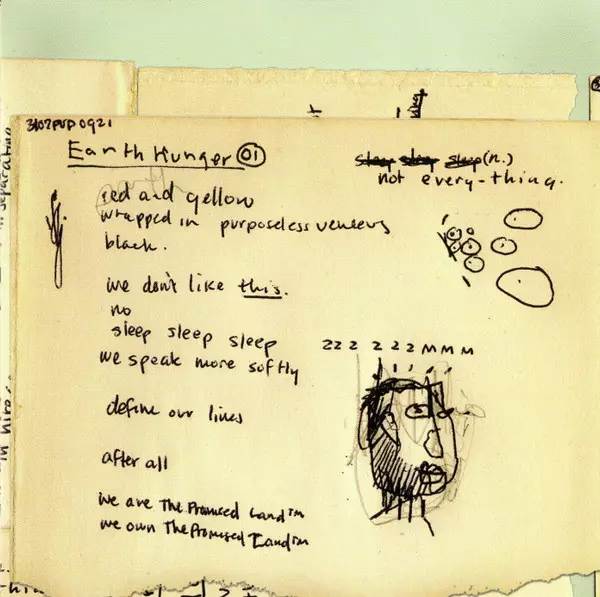 Earth Hunger 01
sleep sleep sleep (n.)
not every-thing.
red and yellow
wrapped in purposeless veneers
black.
we don't like this.
no
sleep sleep sleep
we speak more softly
zzz zzz MMM
define our lines
after all
we are The Promised Land™
we own The Promised Land™